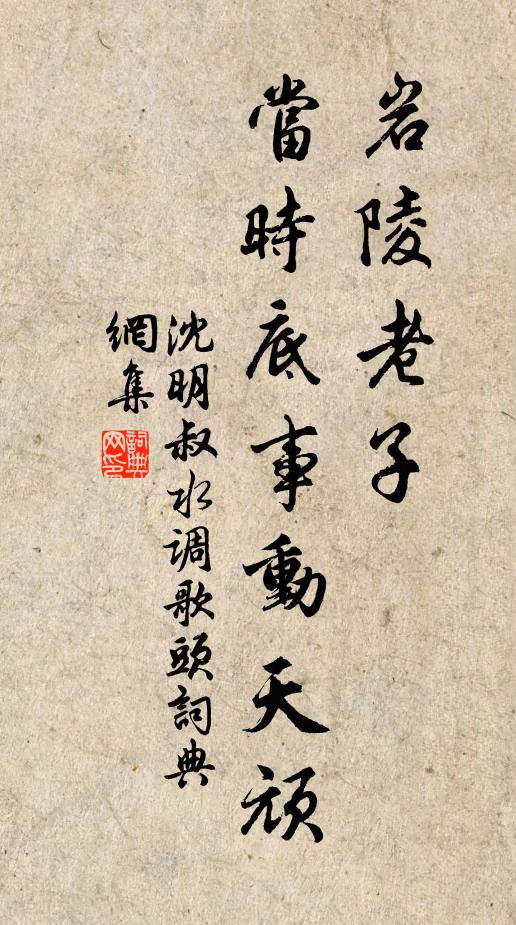 岩陵老子
當時底事動天顔
沈明叔水调歌頭詞典
網集
詞典
网印